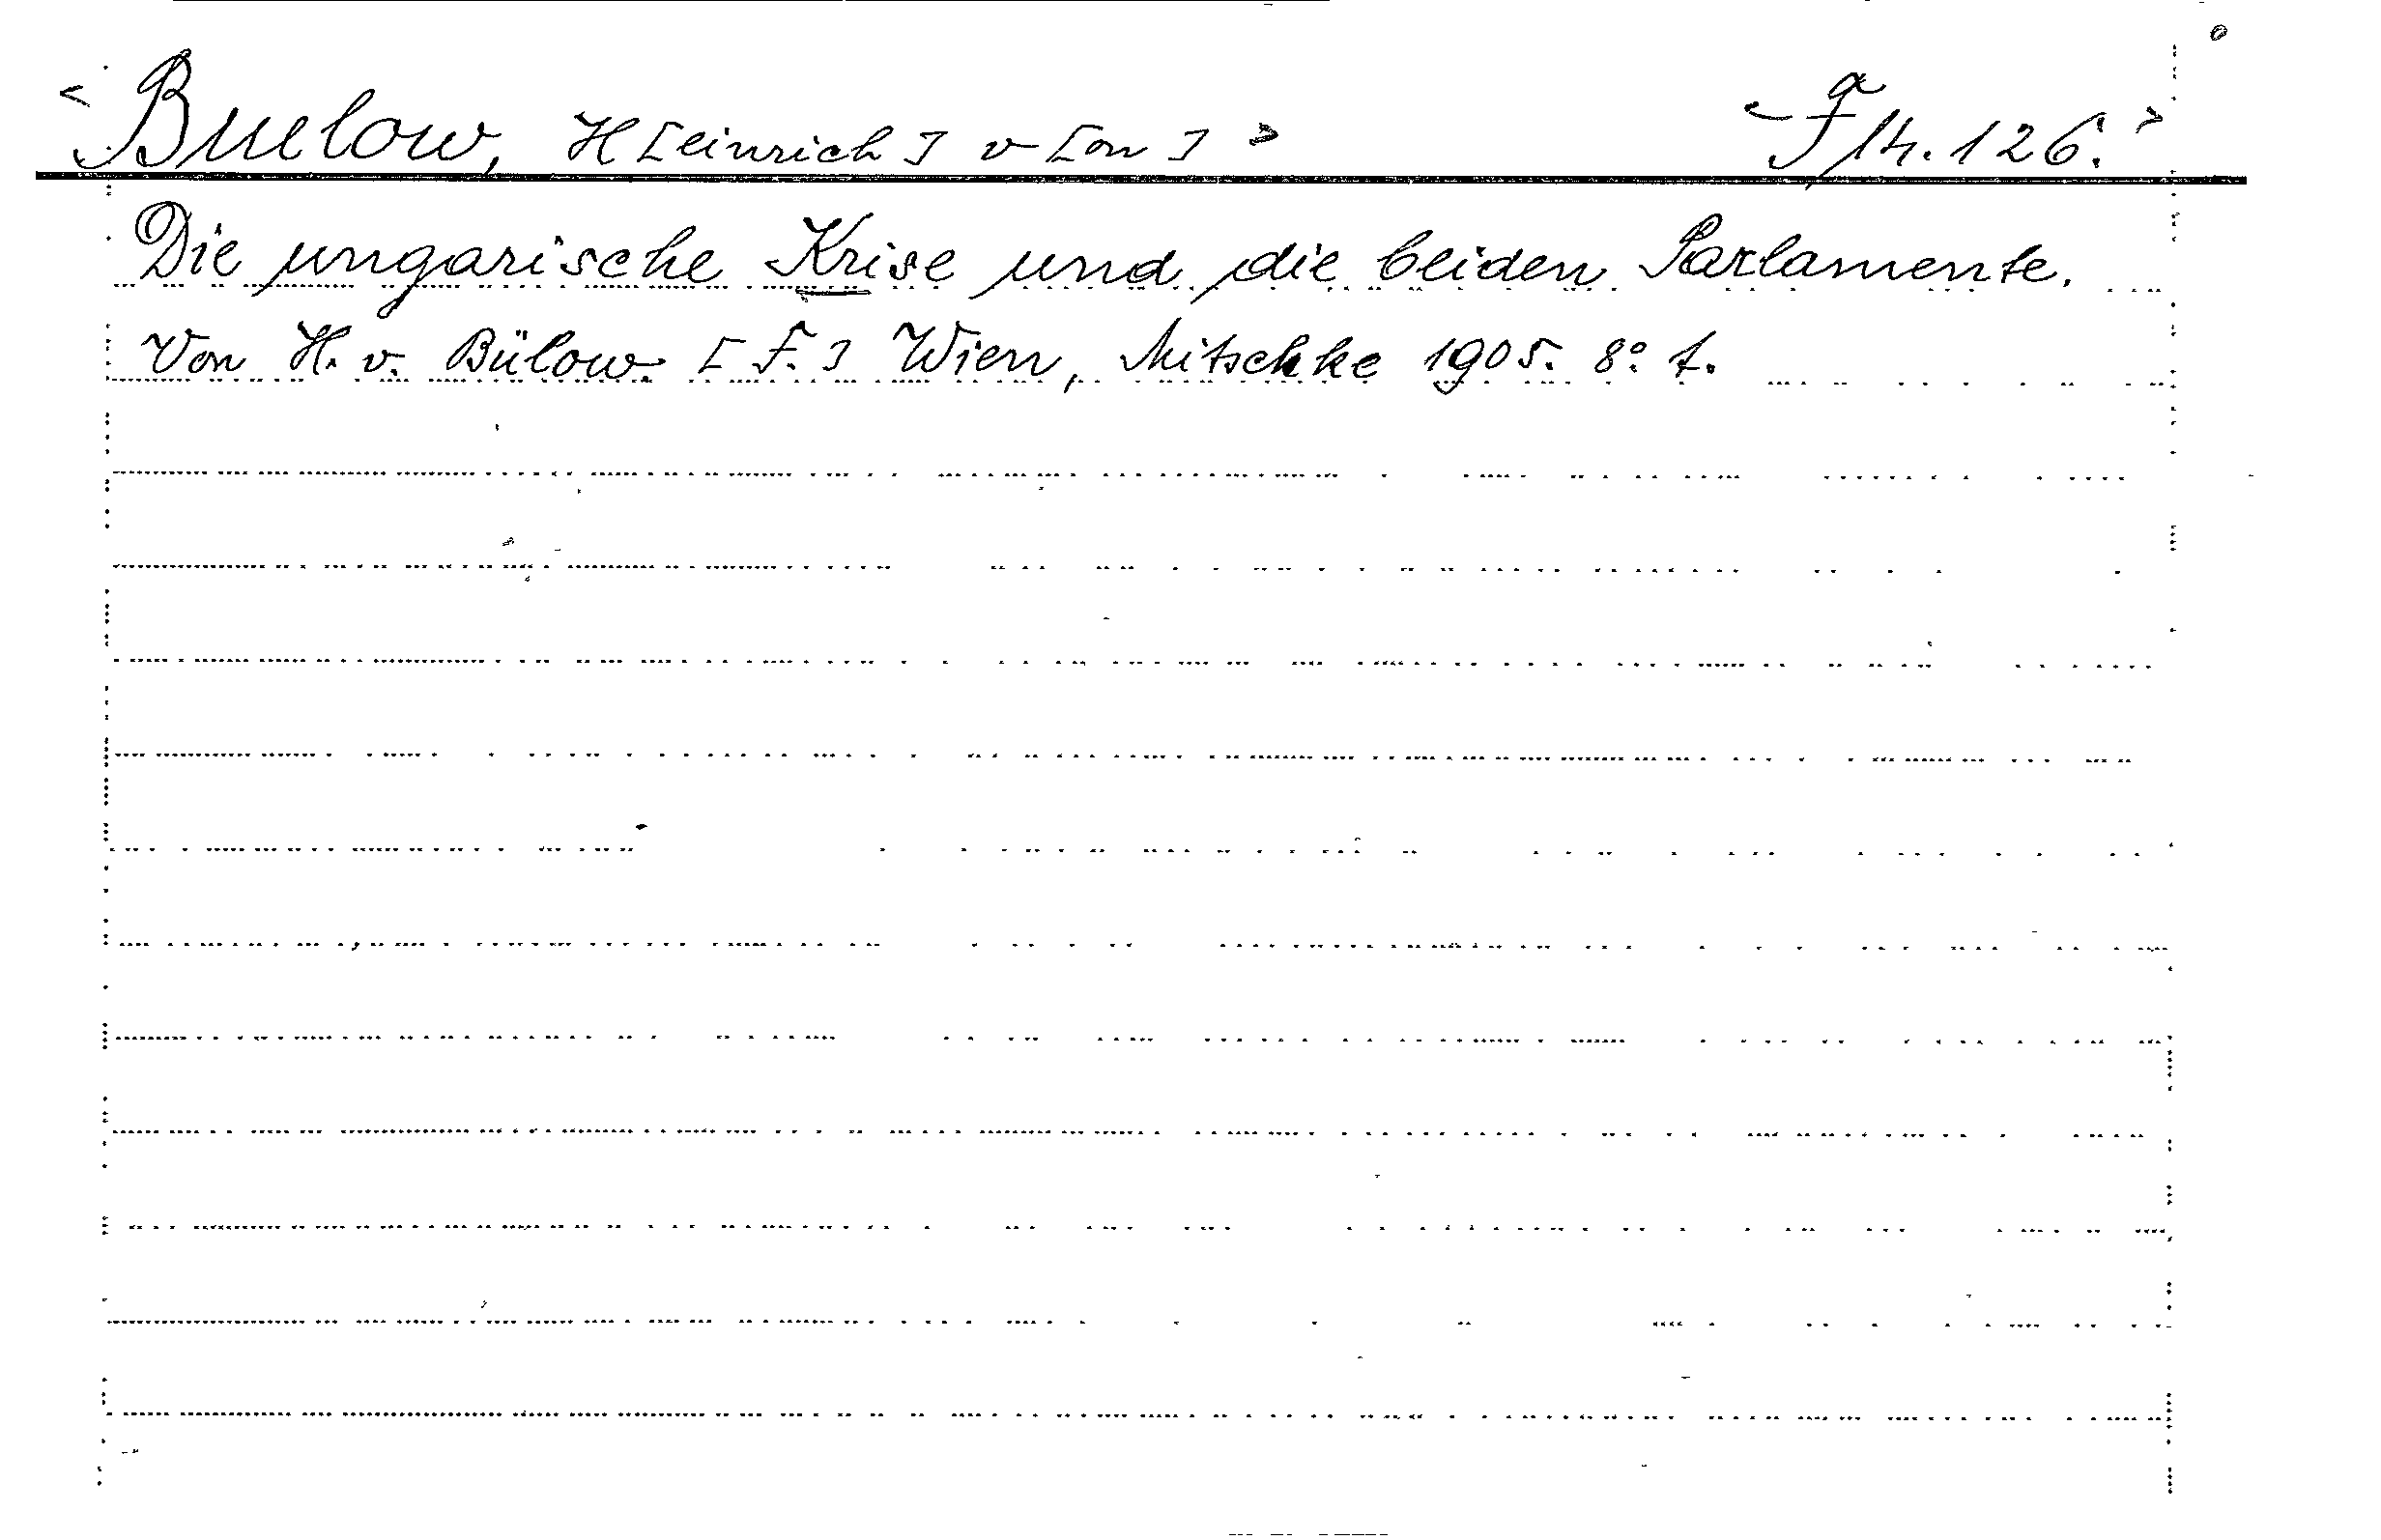 < Buelow, H[einrich] v[on] >
Die ungarische Krise und die beiden Parlamente.
Von H. v. Bülow. [F.] Wien, Mitschke 1905. 8° f.